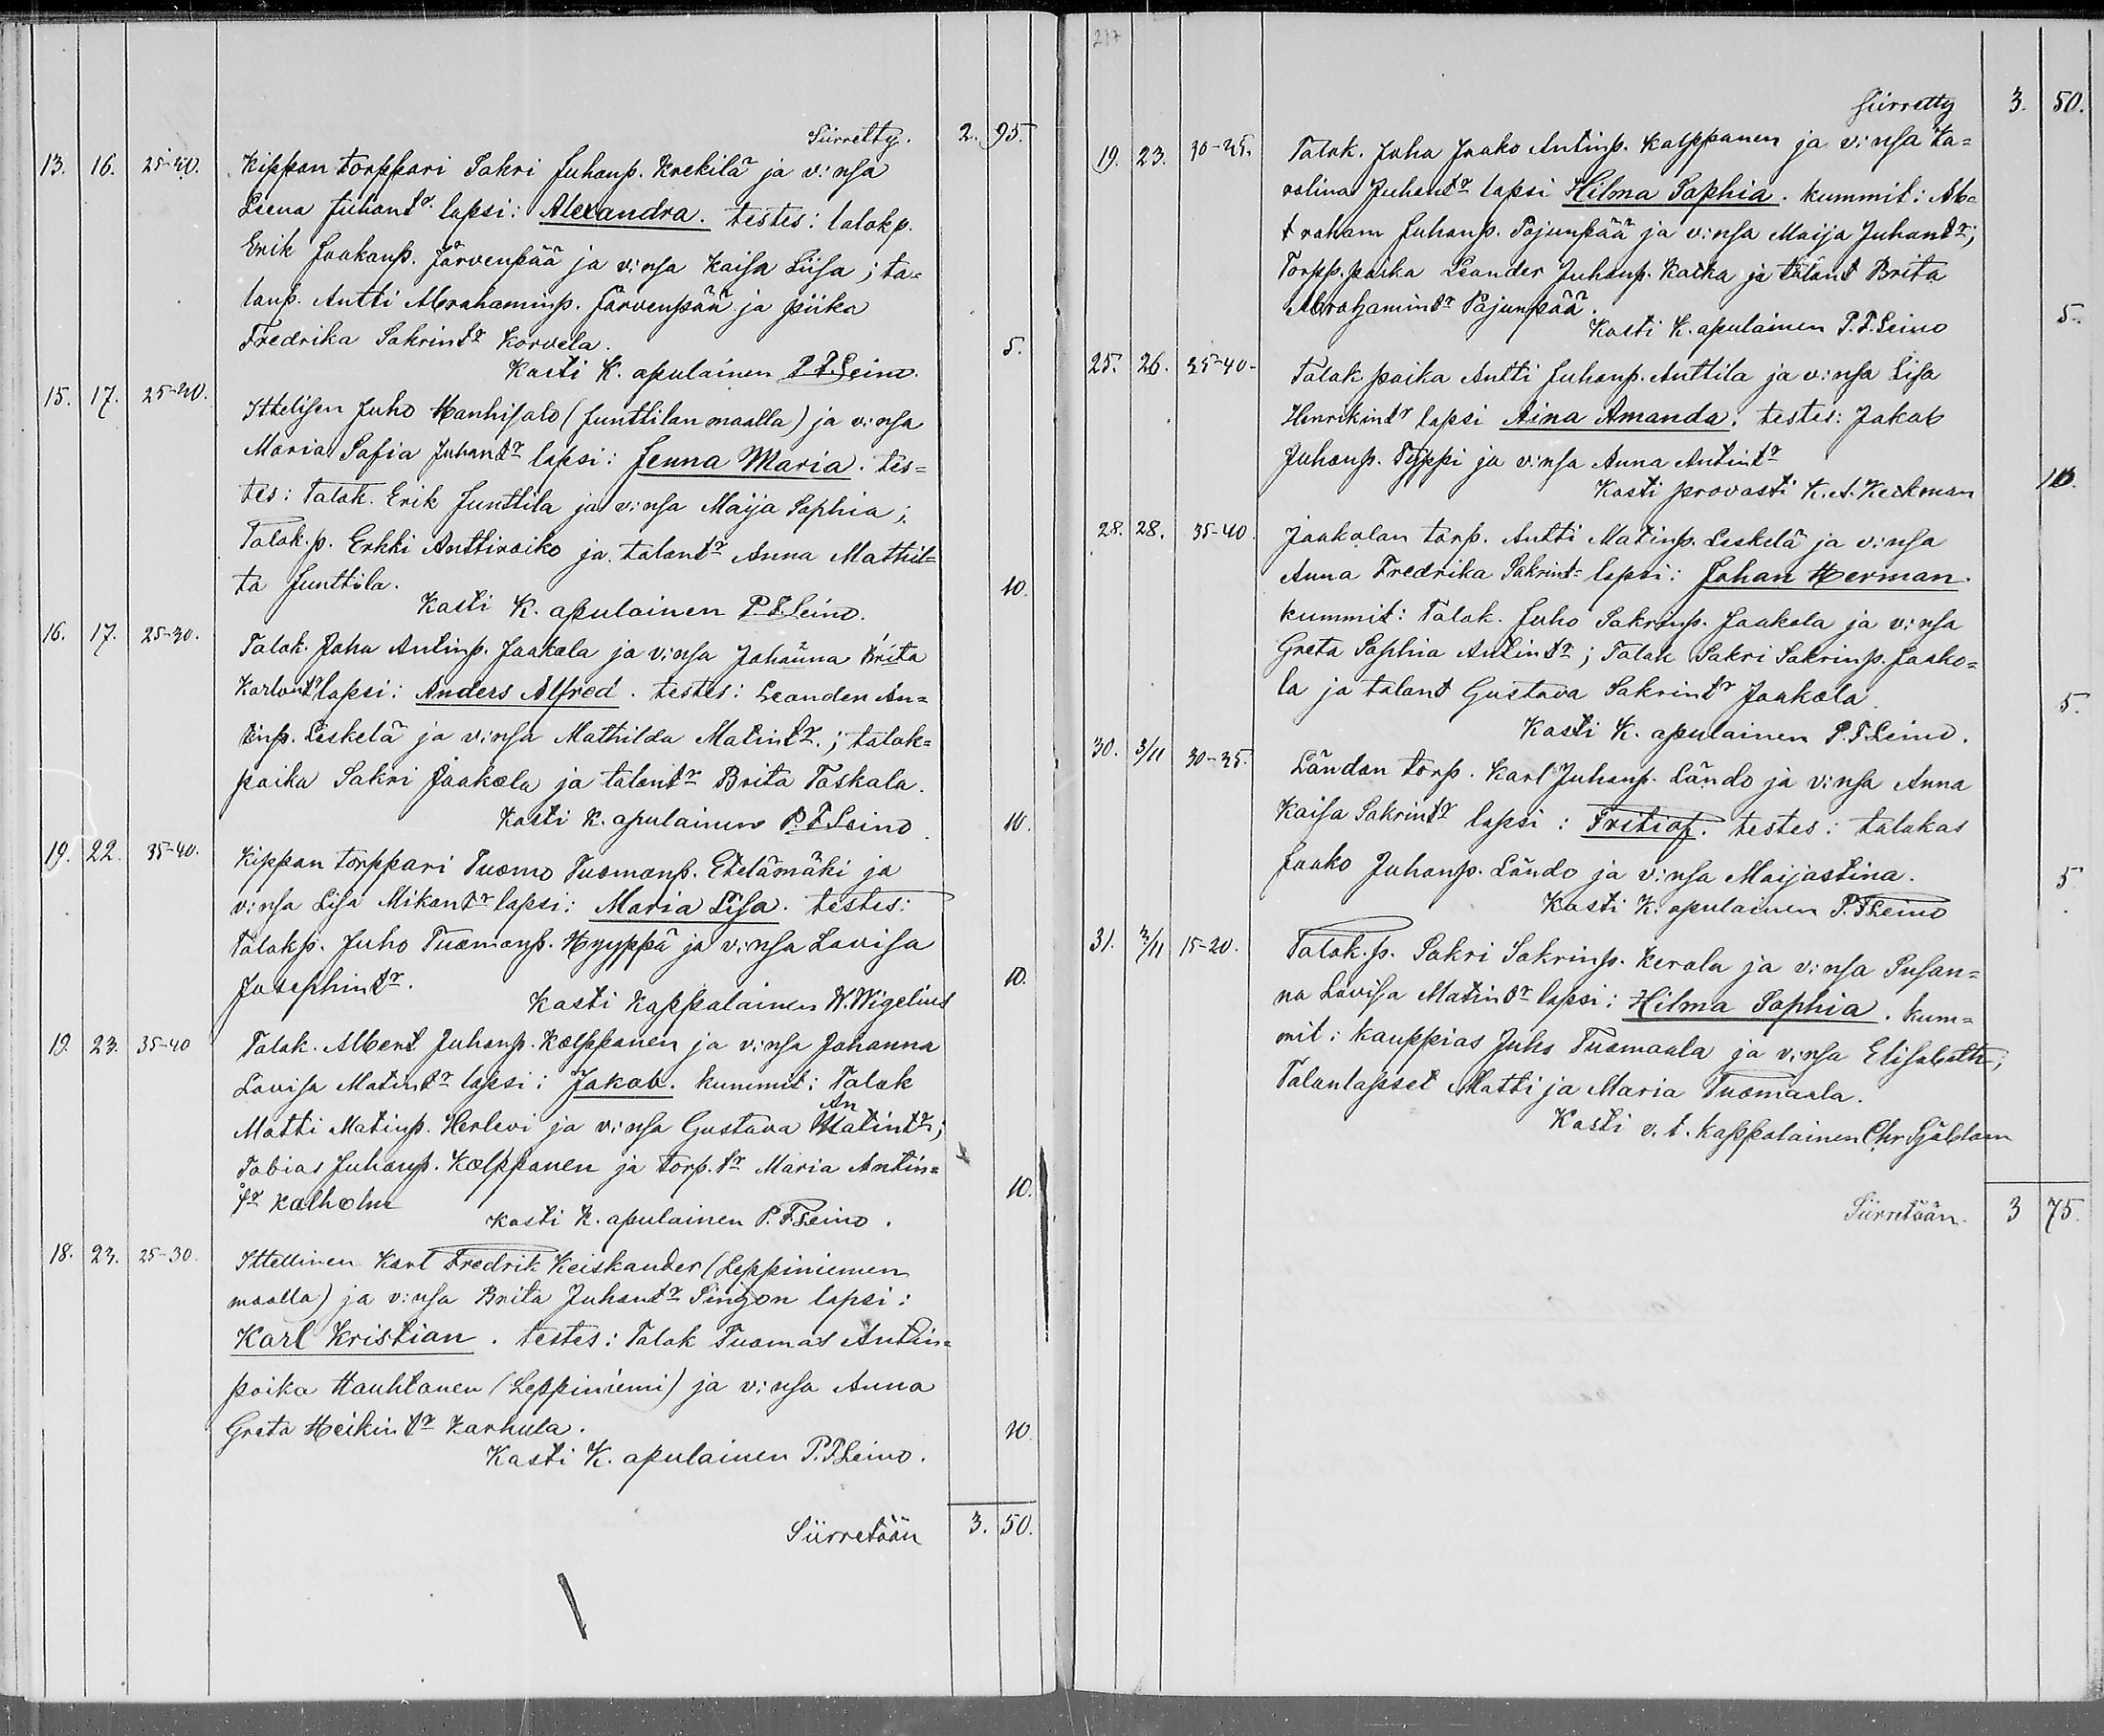 Siirretty. 2. 95.
13. 16. 25-40. Kippan torppari Sakri Juhanp. Krekilä ja v:nsa
Leena Juhantr. lapsi: Alexandra. testes: talokp.
Erik Jaakanp. Järvenpää ja v:nsa Kaisa Liisa; ta=
lanp. Antti Abrahaminp. Järvenpää ja piika
Fredrika Sakrintr Korvela. 5.
Kasti K. apulainen P. F. Leino.
15. 17. 25-40. Ittelisen Juho Hanhisalo (Junttilan maalla) ja v:nsa
Maria Safia Juhantr lapsi: Jenna Maria. tes=
tes: Talok. Erik Junttila ja v:nsa Maija Sophia;
Talok.p. Erkki Anttiroiko ja talantr Anna Mathil=
ta Junttila. 10.
Kasti K. apulainen P. F. Leino.
16. 17. 25-30. Talok. Juha Antinp. Jaakola ja v:nsa Johanna Brita
Karlontr lapsi: Anders Alfred. testes: Leander An=
tinp. Leskelä ja v:nsa Mathilda Matintr.; talok=
poika Sakri Jaakola ja talontr Brita Taskala.
Kasti K. apulainen P. F. Leino. 10.
19. 22. 35-40. Kippan torppari Tuomo Tuomanp. Etelämäki ja
v:nsa Lisa Mikantr lapsi: Maria Lisa. testes:
Talokp. Juho Tuomanp. Hyyppä ja v:nsa Lovisa
Josephintr. 10.
Kasti Kappalainen W. Wigelius
19. 23. 35-40 Talok. Albert Juhanp. Kolppanen ja v:nsa Johanna
Lovisa Matintr lapsi: Jakob. kummit: Talok
An
Matti Matinp. Herlevi ja v:nsa Gustava Matintr;
Tobias Juhanp. Kolppanen ja torp. tr Maria Antin=
tr Kalholm 10.
Kasti K. apulainen P. F. Leino.
18. 23. 25-30. Ittellinen Karl Fredrik Keiskander (Leppiniemen
maalla) ja v:nsa Brita Juhantr Singon lapsi:
Karl Kristian. testes: Talok Tuomas Antin=
poika Hauhtanen (Leppiniemi) ja v:nsa Anna
Greta Heikintr Karhula. 10
Kasti K. apulainen P. F. Leino.
Siirretään 3. 50.
217
Siirretty 3. 50.
19. 23. 30-35. Talok. Juha Jaako Antinp. Kolppanen ja v:nsa Ka=
rolina Juhantr lapsi Hilma Sophia. kummit: Ab=
raham Juhanp. Pajunpää ja v:nsa Maija Juhantr;
Torpp. poika Leander Juhanp. Kaika ja talant Brita
Abrahamintr Pajunpää. 5.
Kasti K. apulainen P. F. Leino
25. 26. 35-40- Talok poika Antti Juhanp. Anttila ja v:nsa Lisa
Henrikintr lapsi Aina Amanda. testes: Jakob
Juhanp. Typpi ja v:nsa Anna Antintr
Kasti provasti K. A. Keckman 10.
28. 28. 35-40. Jaakolan torp. Antti Matinp. Leskelä ja v:nsa
Anna Fredrika Sakrint= lapsi: Johan Herman.
kummit: Talok. Juho Sakrinp. Jaakola ja v:nsa
Greta Sophia Antintr; Talok Sakri Sakrinp. Jaako=
la ja talant Gustava Sakrintr Jaakola. 5.
Kasti K. apulainen P. F. Leino.
30. 3/11 30-35. Ländon torp. Karl Juhanp. Ländo ja v:nsa Anna
Kaisa Sakrintr lapsi: Fritiof. testes: talokas
Jaako Juhanp. Ländo ja v:nsa Maijastina. 5
Kasti K. apulainen P. F. Leino
31. 3/11 15-20. Talok.p. Sakri Sakrinp. Kerola ja v:nsa Susan=
na Lovisa Matintr lapsi: Hilma Sophia. kum=
mit: Kauppias Juho Tuomaala ja v:nsa Elisabeth;
Talonlapset Matti ja Maria Tuomaala.
Kasti v. t. kappalainen Chr
Siirretään. 3 75.